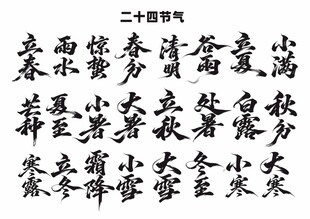 二十四节气
立春 雨水 惊蛰 春分 清明 谷雨 立夏 小满
芒种 夏至 小暑 大暑 立秋 处暑 白露 秋分
寒露 立冬 霜降 小雪 大雪 冬至 小寒 大寒